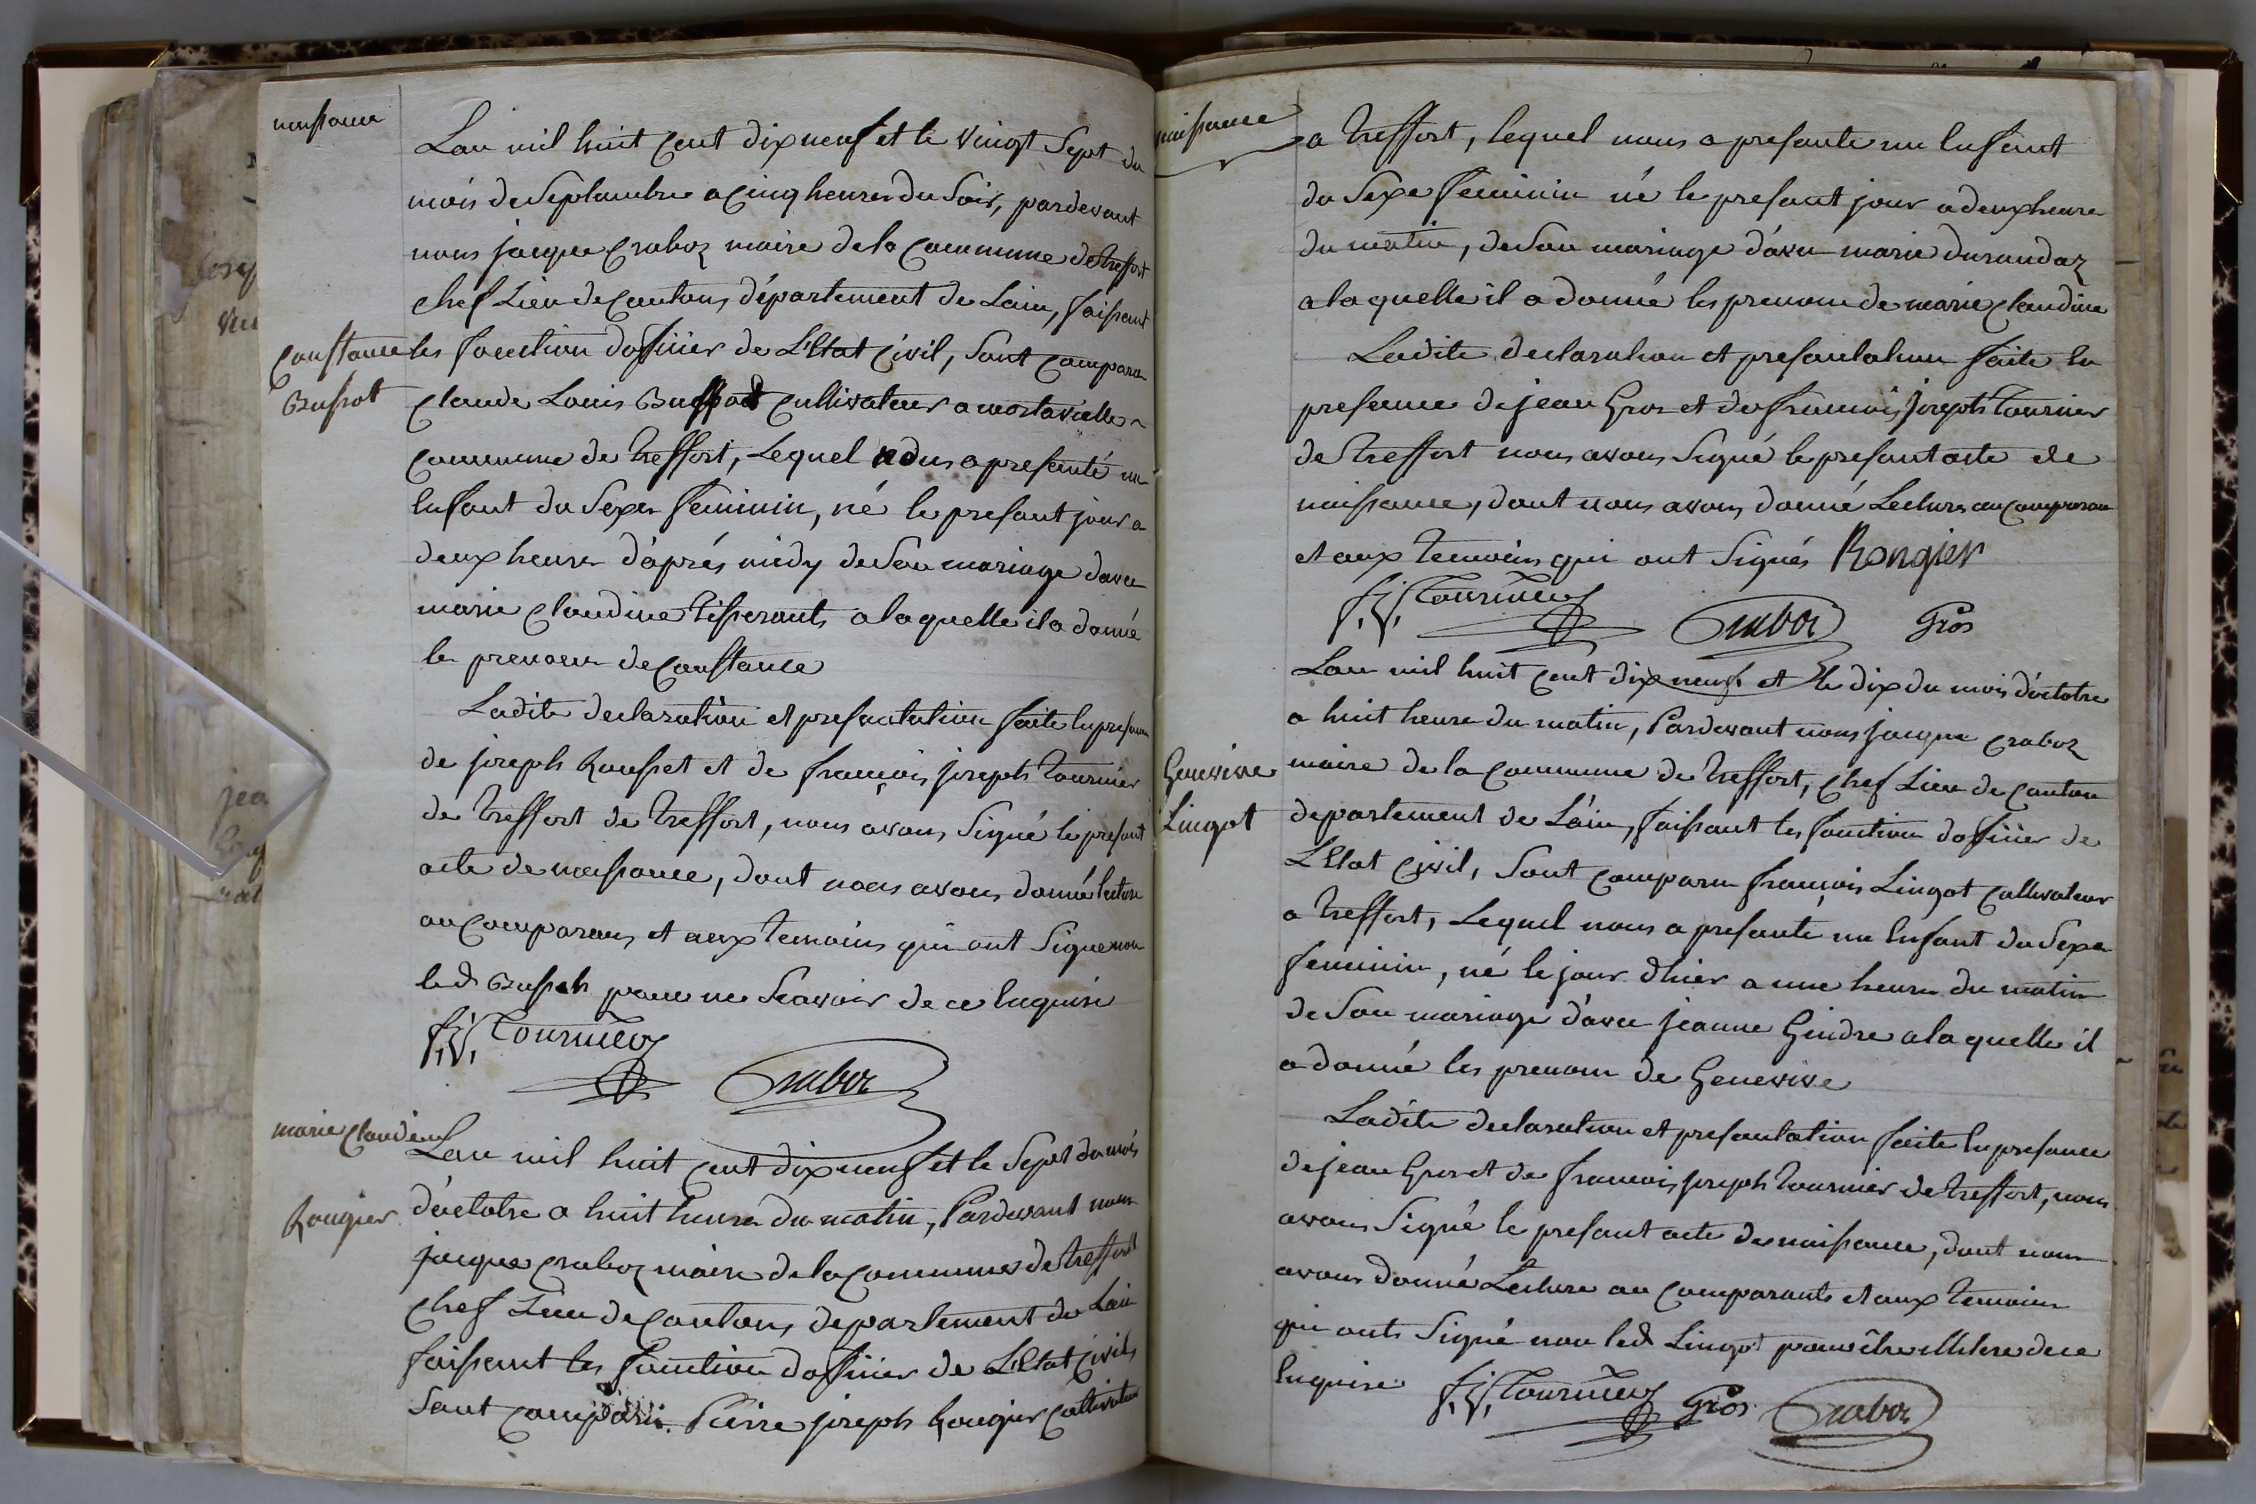 naissance
Lan mil huit cent dix neuf et le vingt Sept du
mois de Septambre a cinq heures du Soir, pardevant
nous jacque craboz maire de la Commune de treffort
chef Lieu de Canton, département de Lain, faissant
Constance les fonction doffiiier de L'Etat Civil, Sont comparu
Bussot Claude Louis Bussod Cultivateur a montavielle
commune de treffort, Lequel nous a presenté un
Enfant du Sexe feminin, né le presant jour a
deux heures d'aprés midy de Son mariage davec
marie claudine tisserants a laquelle il a donné
le prenom de Constance
Ladite declaration et presantation faite En presance
de joseph Rousset et de françois joseph tournier
de treffort de treffort, nous avons Signé le presant
acte de naissance, dont nous avons donné lecture
au comparans et aux temoins qui ont Signe non
led Bussoh pour ne Scavoir de ce Enquiri
f.j. Tournier
Craboz
marie claudine Lan mil huit cent dix neuf et le Sept du mois
Rougier d'octobre a huit heures du matin, Pardevant nous
jacque craboz maire de la commune de treffort
Chef Lieu de Canton, departement de Lain
faissant les fonction doffiiier de L'Etat Civil
Sont comparu Pierre joseph Rougier cultivateur
naissance
a treffort, lequel nous a presante un Enfant
du Sexe feminin né le presant jour a deux heure
du matin, de Son mariage d'avec marie durandaz
a laquelle il a donné les prenom de marie claudine
Ladite declaration et presantation faite En
presence de jean Gros et de francois joseph tournier
de treffort nous avons Signé le presant acte de
naissance, dont nous avons donné Lecture au comparan
et aux temoins qui ont Signés Rongier
f.j. Tournier
Craboz
Gros
Lan mil huit cent dix neuf et le dix du mois d'octobre
a huit heure du matin, Pardevant nous jacque craboz
Genevive maire de la commune de treffort, chef Lieu de canton
Lingot departement de L'ain, faissant les fonction doffiiier de
L'Etat Civil, Sont comparu françois Lingot cultivateur
a treffort, Lequel nous a presante un Enfant du Sexe
feminin, né le jour dhier a une heure du matin
de Son mariage d'avec jeanne Gindre a laquelle il
a donné les prenom de Genevive
Ladite declaration et presantation faite En presance
de jean Gros et de francois joseph tournier de treffort, nous
avons Signé le presant acte de naissance, dont nous
avons donné Lecture au comparants et aux temoins
qui onts Signé non led Lingot pour être illitere de ce
Enquire
f.j. Tournier
Gros
Craboz